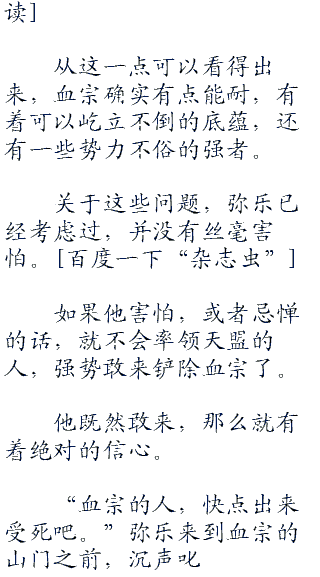 读]
从这一点可以看得出
来，血宗确实有点能耐，有
着可以屹立不倒的底蕴，还
有一些势力不俗的强者。
关于这些问题，弥乐已
经考虑过，并没有丝毫害
怕。[百度一下“杂志虫”]
如果他害怕，或者忌惮
的话，就不会率领天盟的
人，强势敢来铲除血宗了。
他既然敢来，那么就有
着绝对的信心。
“血宗的人，快点出来
受死吧。”弥乐来到血宗的
山门之前，沉声叱